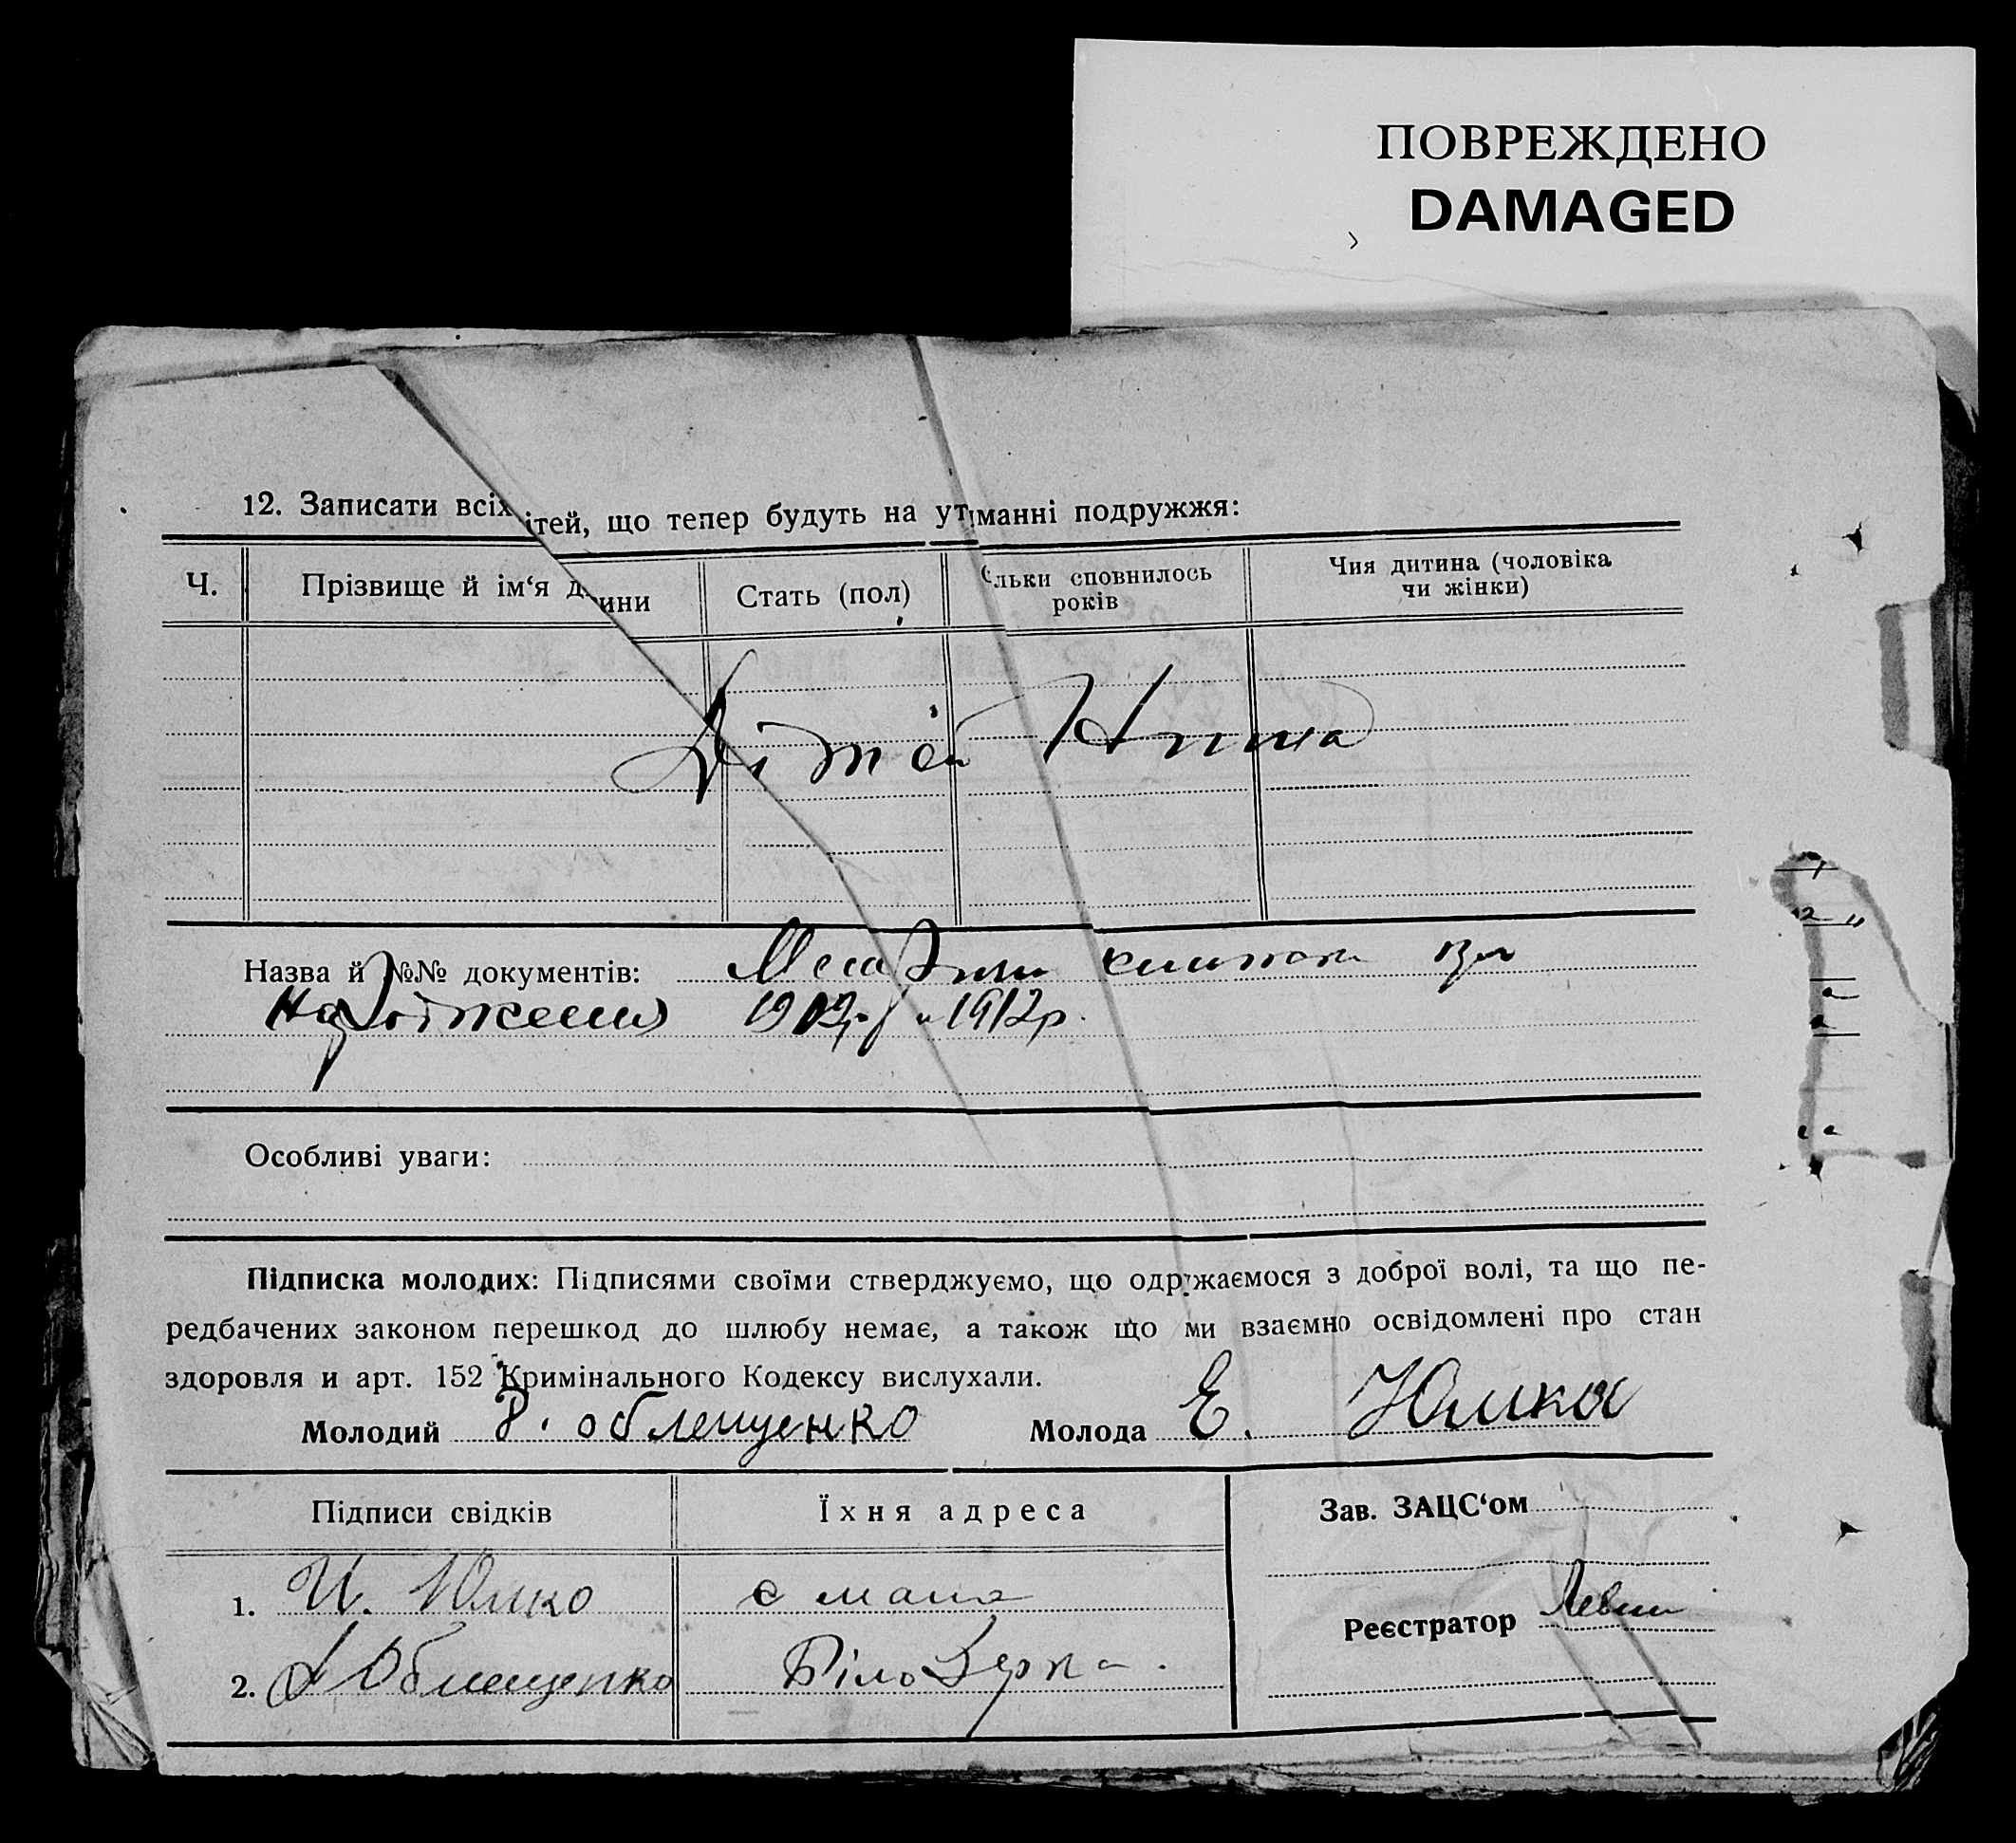 ПОВРЕЖДЕНО
DAMAGED
12. Записати всіх ітей, що тепер будуть на утманні подружжя:
Ч.
Прізвище й ім‘я д ини
Стать (пол)
льки сповнилось
років
Чия дитина (чоловіка
чи жінки)
Дітей Нима
Назва й №№ документів: книжки
народження 1909р. 1912р.
Особливі уваги:
Підписка молодих: Підписями своїми стверджуємо, що одружаємося з доброї волі, та що пе-
редбачених законом перешкод до шлюбу немає, а також що ми взаємно освідомлені про стан
здоровля и арт. 152 Кримінального Кодексу вислухали.
Молодий облещенко Молода Е. Юшка
Підписи свідків
Їхня адреса
Зав. ЗАЦС‘ом
1. И. Юшко
Реєстратор Левин
2. Облещенко
Білозерка.